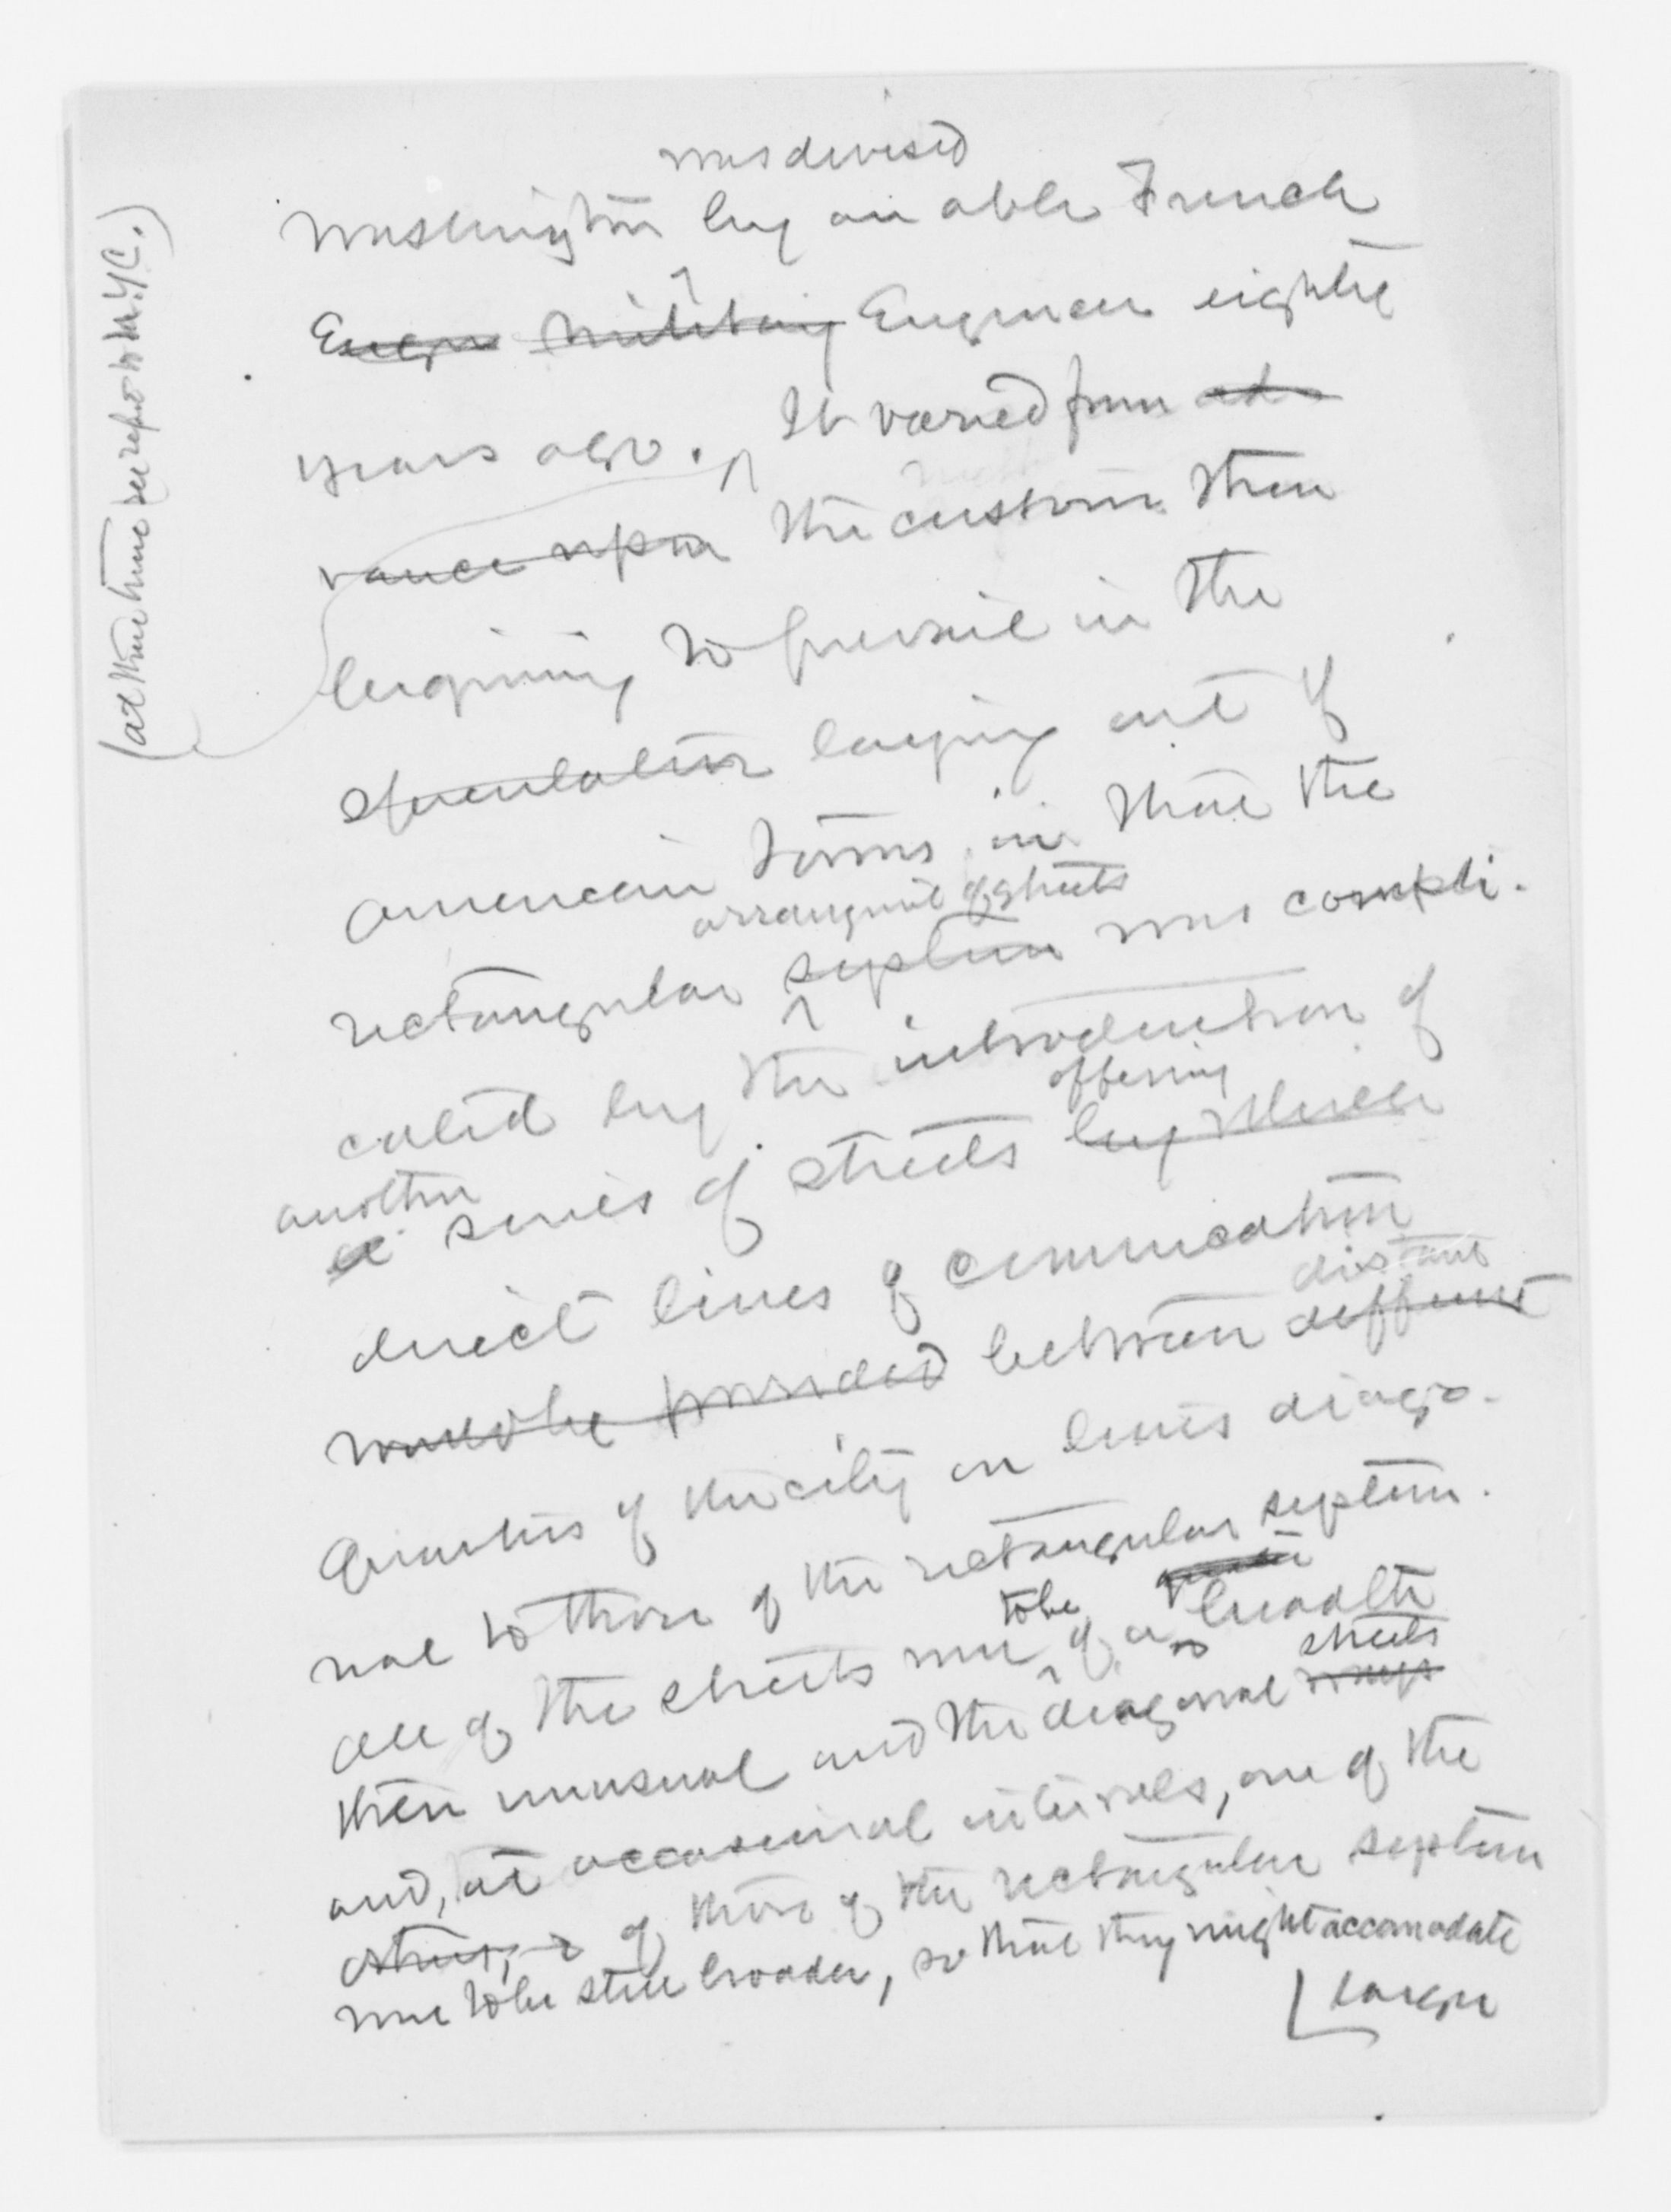 was devised
Washington by an able French
Engin Military Engineer eighty
years ago. It varied from ad
vance upon the custom then
begining to prevail in the
speculation laying out of
American towns in that the
arrangmt of streets
rectangular system was compli-
cated by the introduction of
offering
another
a series of streets by which
direct lines of communication
distant
would be provided between different
quarters of the city on lines diago-
nal to those of the rectangular system.
to be
All of the streets were of a breadth
streets
then unusual and the diagonal ways
and, at occasional intervals, one of the
others, of those of the rectangular system
were to be still broader, so that they might accomodate
larger
(at that time see report to N.Y.C.)